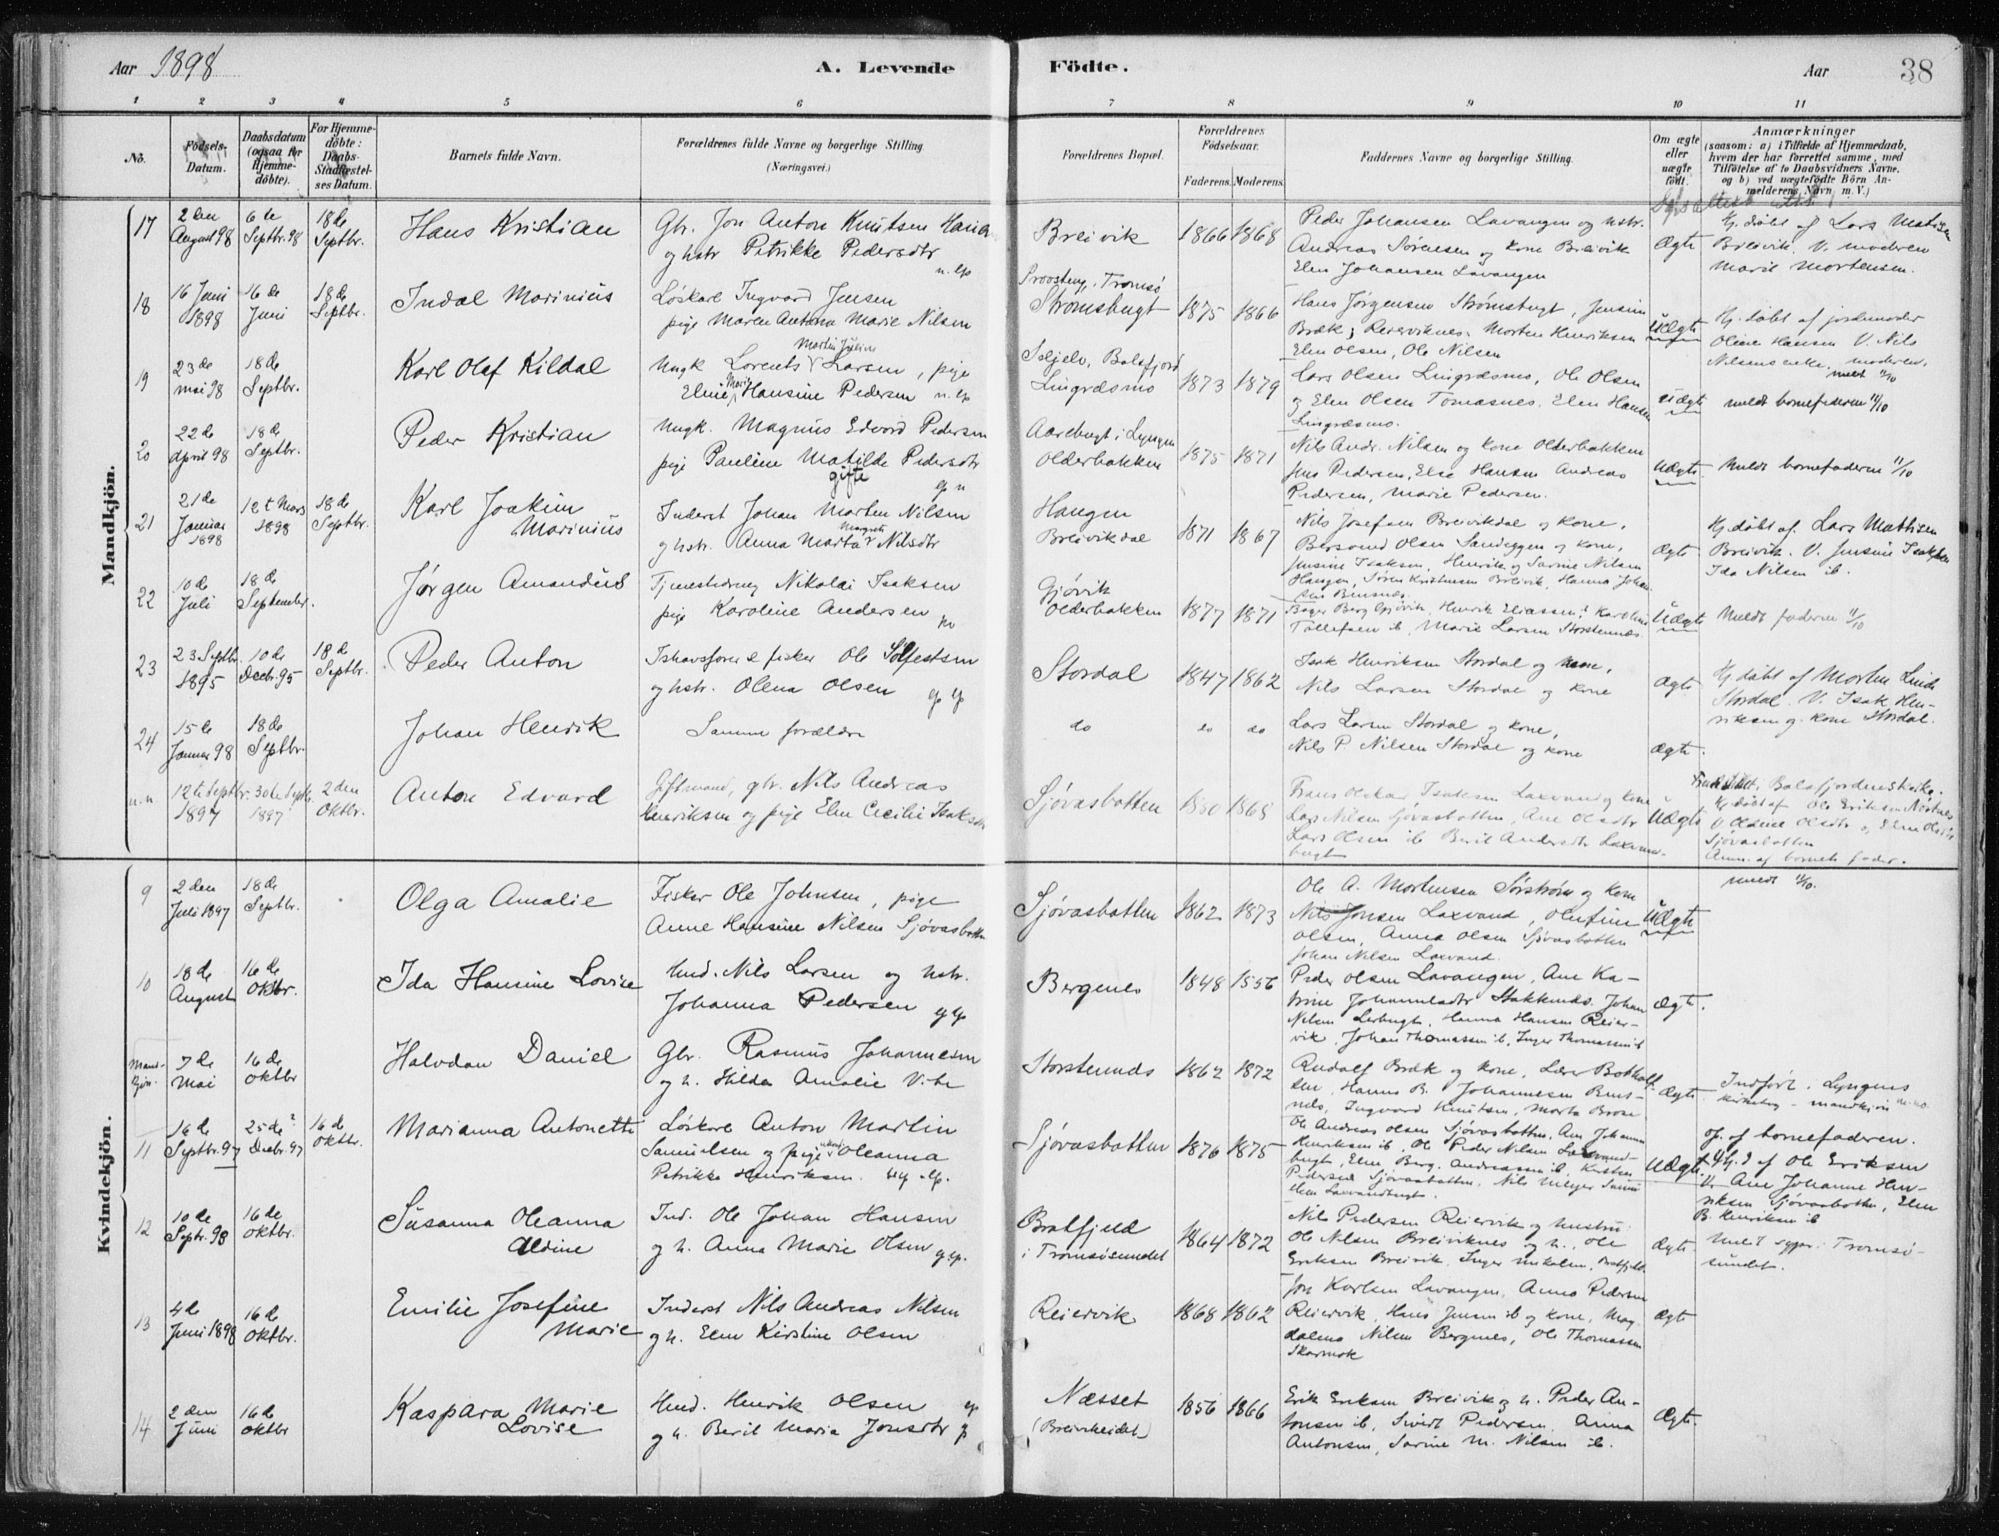 Aar 1898
A. Levende
Födte.
Aar
38
1
2
3
4
5
6
7
8
9
10
11
No.
Födsels-
Datum.
Daabsdatum
(ogsaa for
Hjemme-
döbte).
For Hjemme-
döbte:
Daabs-
Stadfæstel-
ses Datum.
Barnets fulde Navn.
Forældrenes fulde Navne og borgerlige Stilling
(Næringsvei.)
Forældrenes Bopæl.
Forældrenes
Födselsaar.
Faderens. Moderens.
Faddernes Navne og borgerlige Stilling.
Om ægte
eller
uægte
födt.
Anmærkninger
(saasom: a) i Tilfælde af Hjemmedaab,
hvem der har forrettet samme, med
Tilföielse af to Daabsvidners Navne.
og b) ved uægtefödte Börn An-
melderens Navn m. V.)
Mandkjön.
17
2den
August 98
6te
Septbr. 98
18de
Septbr.
Hans Kristian
Gbr. Jon Anton Knutsen
og hstr Petrikke Pedersdtr
Breivik
1866 1868
Peder Johansen Lavangen og hstr.
Andreas Sørensen og kone Breivik
Elen Johansen Lavangen
Ægte
Hj. døbt af Lars Matisen
Breivik. V. moderen
Marit Mortensen.
18
16 Juni
1898
16de
Juni
18de
Septbr.
Indal Marinius
Løskarl Ingvard Jensen
pige Maren Antona Marie Nilsen
Tromsø
Strømsbugt
1875 1866
Hans Jørgensen Strømsbugt, Jensine
Bræk, Reierviknes. Morten Henriksen
Elen Olsen, Ole Nilsen
Uægte
Hj. døbt af jordemoder
Oline Hansen V. Nils
Nilsens enke, moderen.
meldt 11/10
19
23de
mai 98
18de
Septbr.
Karl Olaf Kildal
Ungk Lorents Martin Julius Larsen, pige
Eline Marie Hansine Pedersen
Balsfjord
Lingræsmo
1873 1879
Lars Olsen Lingræsmo, Ole Olsen
og Elen Olsen Tomasnes. Elen Hansen
Lingræsmo.
Uægte
meldt barnefaderen 11/10
20
22de
april 98
18de
Septbr.
Peder Kristian
Ungk. Magnus Edvard Pedersen
pige Pauline Matilde Pedersdtr
Lyngen
Olderbakken
1875 1871
Nils Andr. Nilsen og kone Olderbakken
Jens Pedersen, Else Hansen Andreas
Pedersen, Marie Pedersen.
Uægte
Meldt barnefaderen 11/10
21
21de
Januar
1898
12t Mars
1898
18de
Septbr.
Karl Joakim
Marinius
gifte
Inderst Johan Morten Nilsen
og hstr. Anna Marta Margrete Nilsdtr
Haugen
Breivikdal
1871 1867
Nils Josefsen Breivikdal og kone,
Bersvend Olsen Sandeggen og kone,
Jensine Isaksen, Henrik og Sarine Nilsen
Haugen, Søren Kristensen Breivik, Hanna Johan-
sen
Ægte
Hj. døbt af. Lars Mattisen
Breivik. V. Jensine Isaksen
Ida Nilsen ib.
22
10de
Juli
18de
September.
Jørgen Amandus
Tjenestedreng Nikolai Isaksen
pige Karoline Andersen
Gjøvik
Olderbakken
1877 1871
Berg Gjøvik, Henrik Eliassen, Karoline
Tollefsen ib, Marie Larsen Storstennes
Uægte
Meldt faderen 11/10
23
23 Septbr.
1895
10de
Decbr. 95
18de
Septbr.
Peder Anton
Ishavsfarer & fisker Ole Solfestsen
og hstr. Olena Olsen
Stordal
1847 1862
Isak Henriksen Stordal og kone,
Nils Larsen Stordal og kone
Ægte
Hj. døbt af Morten
Stordal. V. Isak Hen-
riksen og kone Stordal.
24
15de
Januar 98
18de
Septbr.
Johan Henrik
Samme forældre
do
do do
Lars Larsen Stordal og kone,
Nils P. Nilsen Stordal og kone
Ægte.
u.n
12te Septbr.
1897
30te Septbr.
1897
2den
Oktbr.
Anton Edvard
Giftmand, gbr. Nils Andreas
Henriksen og pige Elen Cecilie Isaksdtr
Sjøvasbotten
1850 1868
Frans Oskar Isaksen Laxvand og kone
Lars Nilsen Sjøvasbotten, Ane Olsdtr
Lars Olsen ib Berit Andersdtr Laxvand-
bugt
Uægte
Balsfjordens kirke.
Hj. døbt af Ole Eriksen
V. Oldine Olsdtr og Elen Olsdtr
Sjøvasbotten
Anm. af barnets fader.
meldt 11/10.
Kvindekjön.
9
2den
Juli 1897
18de
Septbr.
Olga Amalie
Fisker Ole Johnsen, pige
Anne Hansine Nilsen Sjøvasbotten
Sjøvasbotten
1862 1873
Ole A. Mortensen Sørstrøm og kone
Nils Jensen Laxvand, Olufine
Olsen, Anna Olsen Sjøvasbotten
Johan Nilsen Laxvand.
Uægte
10
18de
August
16de
Oktbr.
Ida Hansine Lovise
Hmd. Nils Larsen og hstr.
Johanna Pedersen
Bergenes
1848 1556
Peder Olsen Lavangen, Ane Ka-
trine Johannesdtr Stakkenes. Johan
Nilsen Lerbugt, Hanna Hansen Reier-
vik, Johan Thomassen ib, Inger Thomassen ib
Ægte.
Mand-
kjøn.
7de
Mai
16de
Oktbr
Halvdan Daniel
Gbr. Rasmus Johannesen
og h. Hilda Amalie
Storstennes
1862 1872
Rudolf Bræk og kone, Lærer
Hanna B. Johannesen
Ingvard Knutsen, Marta
Ægte
Indført. Lyngens
kirkebog - mandkjøn
11
16de
Septbr. 97
25de?
Decbr. 97
16de
Oktbr.
Marianna Antonette
Løskarl Anton Martin
Samuelsen og pige Oleanna
Petrikke Henriksen.
Sjøvasbotten
1876 1875
Ole Andreas Olsen Sjøvasbotten, Ane Johanna
Henriksen ib, Ole Peder Nilsen Laxvand-
bugt, Elen Berg. Andreassen ib, Kirsten
Pedersen Sjøvasbotten, Nils Meyer
Elen Laxvandbugt.
Uægte.
op. af barnefaderen.
Hj. d af Ole Eriksen
V. Ane Johanne Hen-
riksen Sjøvasbotten, Elen
B. Henriksen ib
12
10de
Septr. 98
16de
Oktbr.
Susanna Oleanna
Aldine
Ind. Ole Johan Hansen
og h. Anna Marie Olsen
Bratfjeld
i Tromsøsundet
1864 1872
Nils Pedersen Reiervik og hustru
Ole Nilsen Breiviknes og h., Ole
Eriksen Breivik, Inger Mikalsen, Bratfjeld.
Ægte
Meldt sogpr. i Tromsø-
sundet.
13
4de
Juni 1898
16de
Oktbr.
Emilie Josefine
Marie
Inderst Nils Andreas Nilsen
og h. Elen Kirstine Olsen
Reiervik
1868 1862
Jon Karlsen Lavangen, Anna Pedersen
Reiervik, Hans Jensen ib og kone, Mag-
dalena Nilsen Bergenes, Ole Thomassen
Skarmok
Ægte
14
2den
Juni
16de
Oktbr
Kaspara Marie
Lovise
Hmd. Henrik Olsen
og h. Berit Maria Jonsdtr
Næsset
(Breivikeidet)
1856 1866
Erik Eriksen Breivik og h. Peder An-
tonsen ib, Sivert Pedersen, Anna
Antonsen, Sarine M. Nilsen ib.
Ægte.